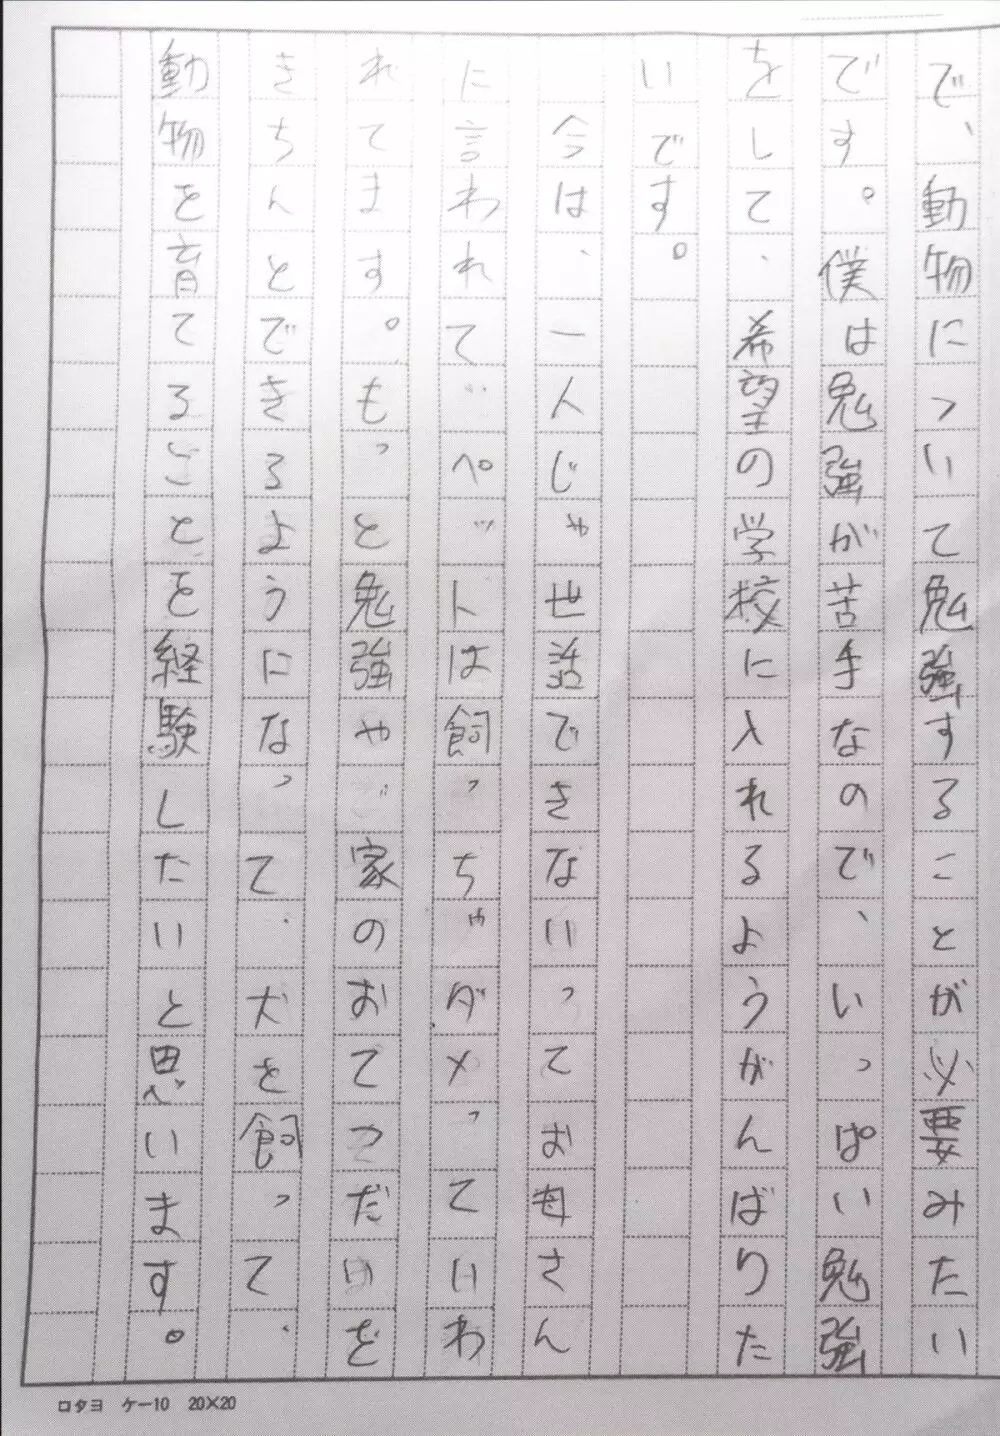 で、動物について勉強することが必要みたい
です。僕は勉強が苦手なので、いっぱい勉強
をして、希望の学校に入れるようがんばりた
いです。
今は、一人じゃ世話できないってお母さん
に言われて、ペットは飼っちゃダメっていわ
れてます。もっと勉強や家のおてつだいを
きちんとできるようになって、犬を飼って、
動物を育てることを経験したいと思います。
ロタヨ ケー10 20×20